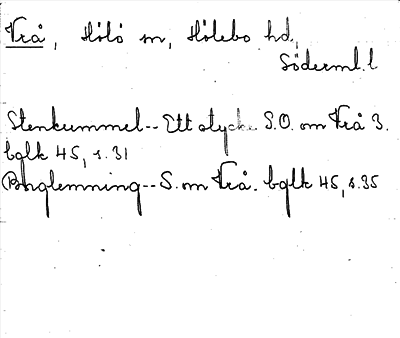 Vrå, Hölö sn, Hölebo hd,
Söderml. l
Stenkummel -- Ett stycke S.O. om Vrå 3.
bglk 45, s. 31
Borglemning -- S. om Vrå. bglk 45, s. 35